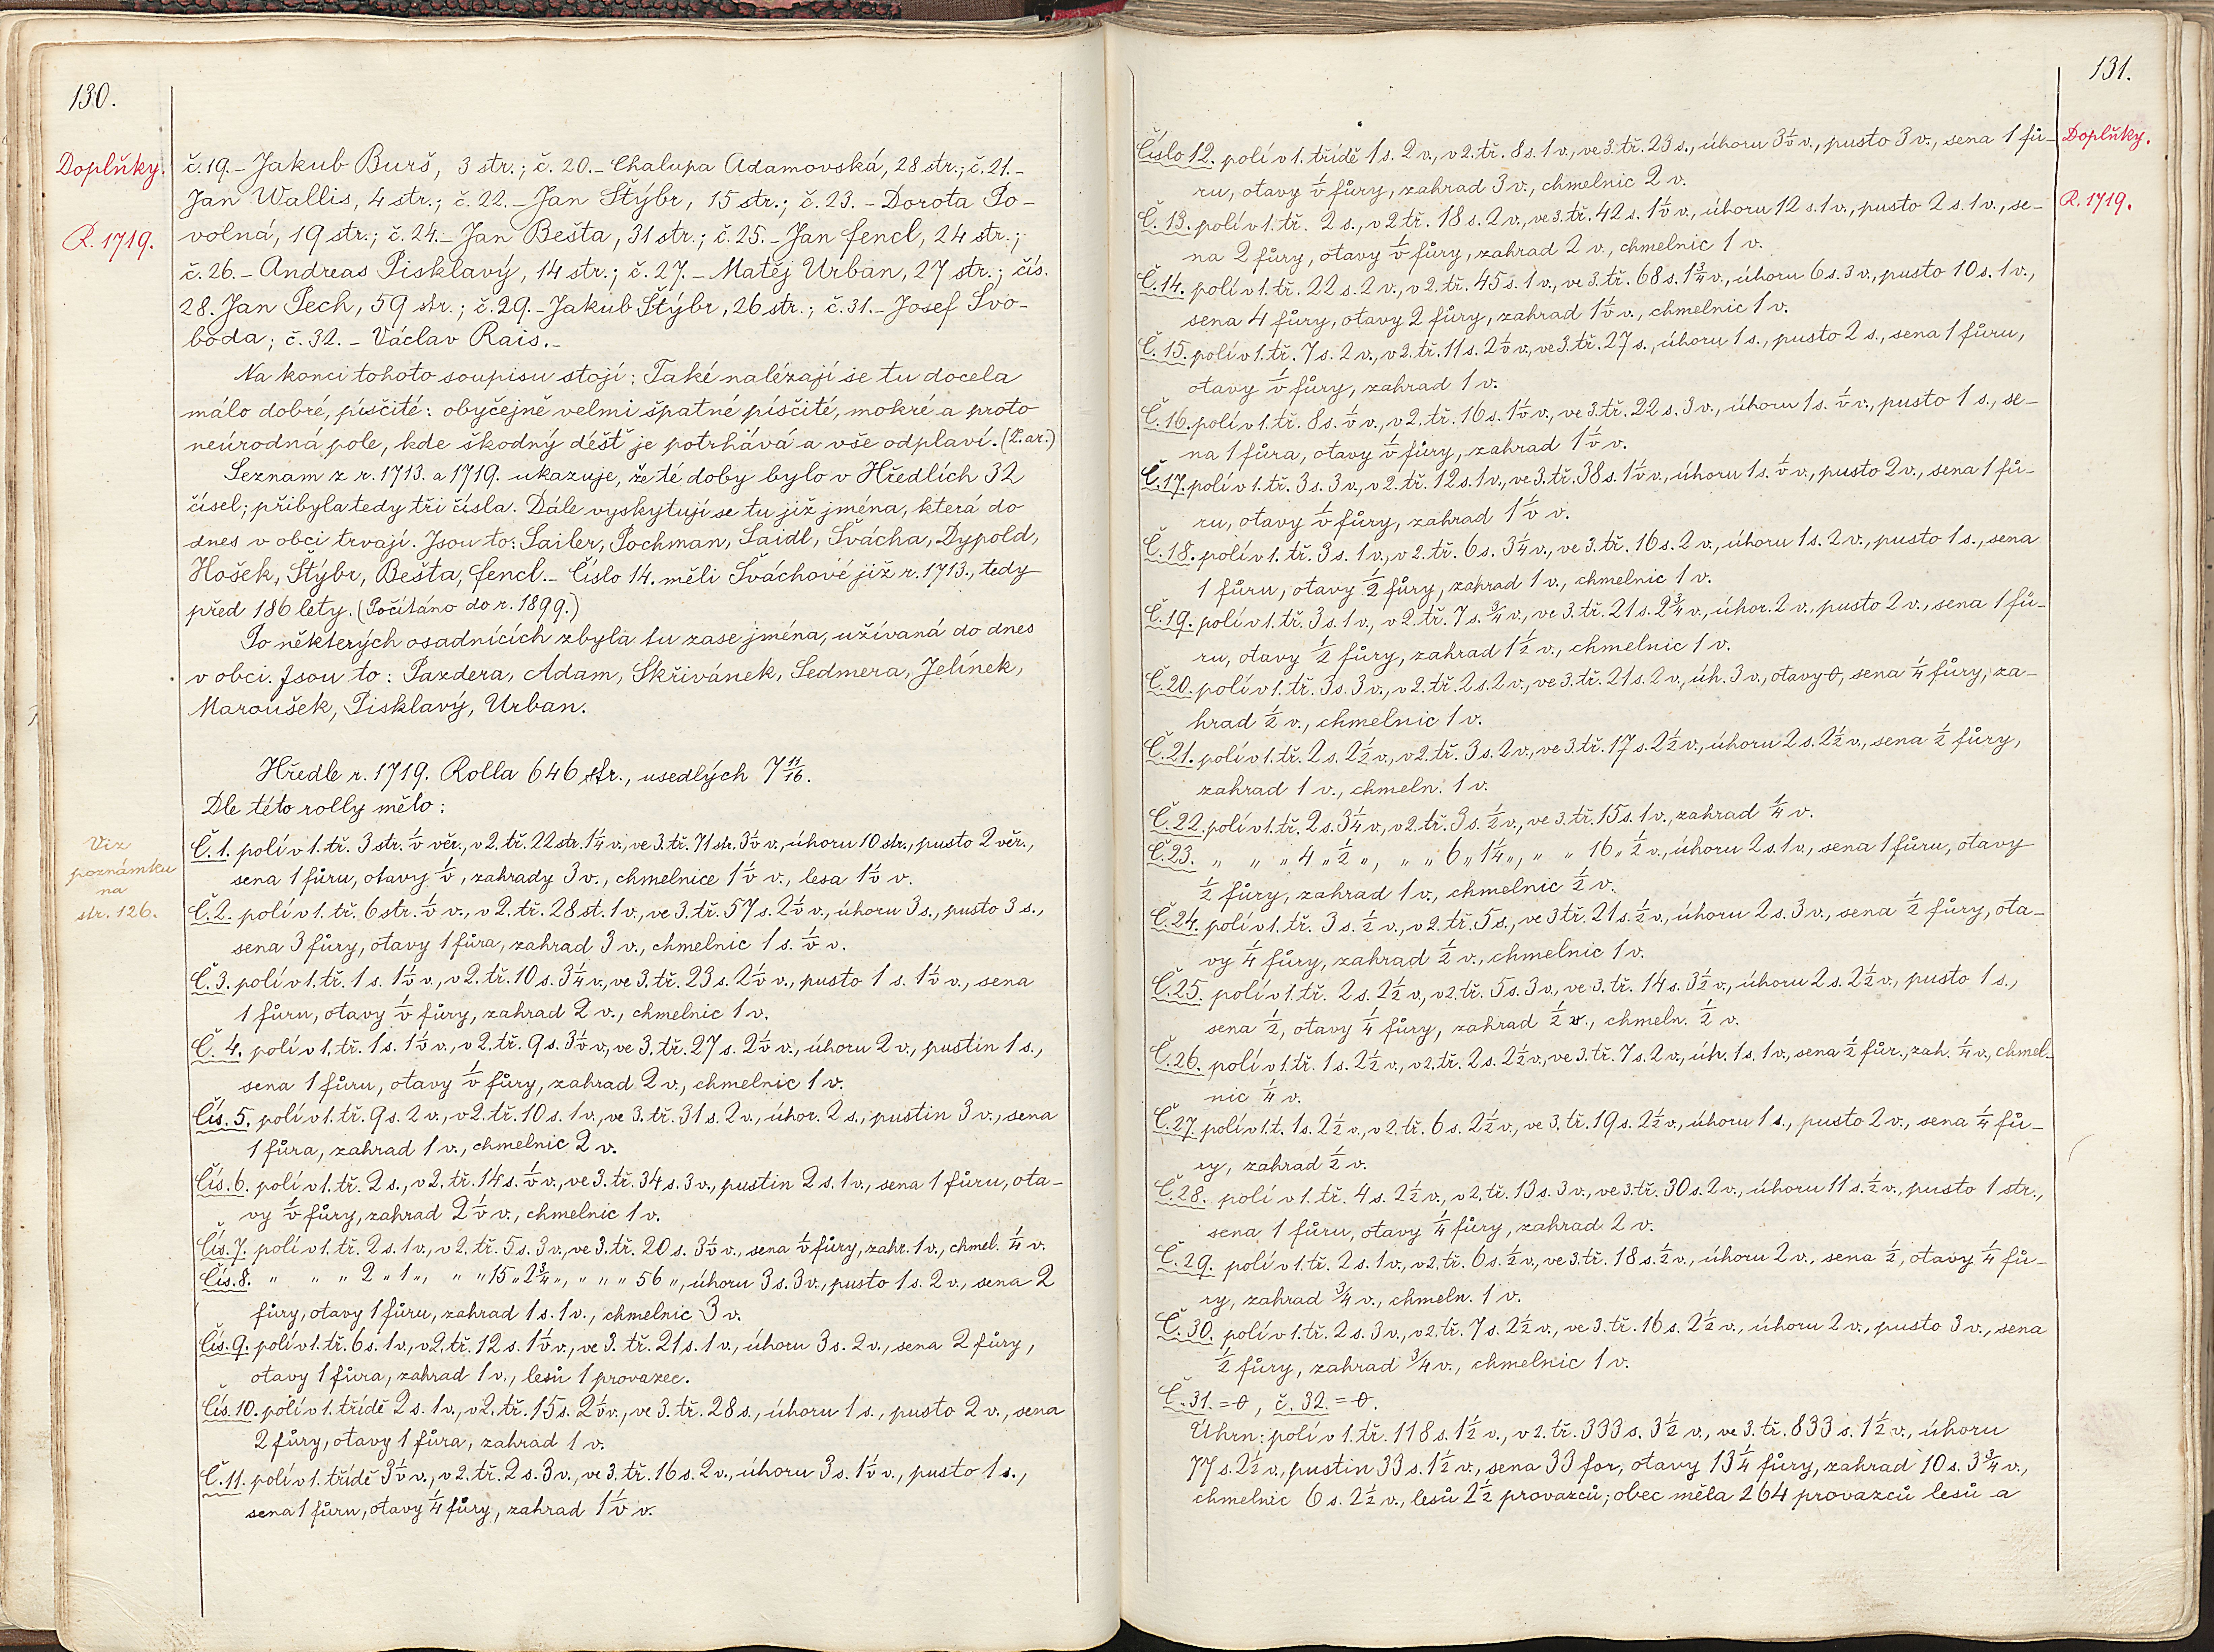 130.
Doplňky.
R. 1719.
č. 19. - Jakub Burš, 3 str.; č. 20. - Chalupa Adamovská, 28 str.; č. 21. -
Jan Wallis, 4 str.; č. 22. - Jan Štýbr, 15 str.; č. 23. - Dorota Po-
volná, 19 str.; č. 24. - Jan Bešta, 31 str.; č. 25. - Jan Fencl, 24 str.;
č. 26. - Andreas Pisklavý, 14 str.; č. 27. - Matěj Urban, 27 str.; čís.
28. Jan Pech, 59 str.; č. 29. - Jakub Štýbr, 26 str.; č. 31. - Josef Svo-
boda; č. 32. - Václav Rais. -
Na konci tohoto soupisu stojí: Také nalézají se tu docela
málo dobré, písčité: obyčejně velmi špatné písčité, mokré a proto
neúrodná pole, kde škodný déšť je potrhává a vše odplaví. (Z. ar.)
Seznam z r. 1713. a 1719. ukazuje, že té doby bylo v Hředlích 32
čísel; přibyla tedy tři čísla. Dále vyskytují se tu již jména, která do
dnes v obci trvají. Jsou to: Sailer, Pochman, Saidl, Švácha, Dypold,
Hošek, Štýbr, Bešta, Fencl. - Číslo 14. měli Šváchové již r. 1713., tedy
před 186 lety. (Počítáno do r. 1899.)
Po některých osadnících zbyla tu zase jména, užívaná do dnes
v obci. Jsou to: Pazdera, Adam, Skřivánek, Sedmera, Jelínek,
Maroušek, Pisklavý, Urban.
Hředle r. 1719. Rolla 646 str., usedlých 7 11/16.
Dle této rolly mělo:
Viz
poznámku
na
str. 126.
Č. 1. polí v 1. tř. 3 str. ½ věr., v 2. tř. 22 str. 1¼ v., ve 3. tř. 71 str. 3½ v., úhoru 10 str., pusto 2 věr.,
sena 1 fůru, otavy ½, zahrady 3 v., chmelnice 1½ v., lesa 1½ v.
Č. 2. polí v 1. tř. 6 str. ½ v., v 2. tř. 28 st. 1 v., ve 3. tř. 57 s. 2½ v., úhoru 3 s., pusto 3 s.,
sena 3 fůry, otavy 1 fůra, zahrad 3 v., chmelnic 1 s. ½ v.
Č. 3. polí v 1. tř. 1 s. 1½ v., v 2. tř. 10 s. 3¼ v., ve 3. tř. 23 s. 2½ v., pusto 1 s. 1½ v., sena
1 fůru, otavy ½ fůry, zahrad 2 v., chmelnic 1 v.
Č. 4. polí v 1. tř. 1 s. 1½ v., v 2. tř. 9 s. 3½ v., ve 3. tř. 27 s. 2½ v., úhoru 2 v., pustin 1 s.,
sena 1 fůru, otavy ½ fůry, zahrad 2 v., chmelnic 1 v.
Čís. 5. polí v 1. tř. 9 s. 2 v., v 2. tř. 10 s. 1 v., ve 3. tř. 31 s. 2 v., úhor. 2 s., pustin 3 v., sena
1 fůra, zahrad 1 v., chmelnic 2 v.
Čís. 6. polí v 1. tř. 2 s., v 2. tř. 14 s. ½ v., ve 3. tř. 34 s. 3 v., pustin 2 s. 1 v., sena 1 fůru, ota-
vy ½ fůry, zahrad 2½ v., chmelnic 1 v.
Čís. 7. polí v 1. tř. 2 s. 1 v., v 2. tř. 5 s. 3 v., ve 3. tř. 20 s. 3½ v., sena ½ fůry, zahr. 1 v., chmel. ¼ v.
Čís. 8. " " " 2 " 1 ", " " 15 " 2¾ ", " " " 56 ", úhoru 3 s. 3 v., pusto 1 s. 2 v., sena 2
fůry, otavy 1 fůru, zahrad 1 s. 1 v., chmelnic 3 v.
Čís. 9. polí v 1. tř. 6 s. 1 v., v 2. tř. 12 s. 1½ v., ve 3. tř. 21 s. 1 v., úhoru 3 s. 2 v., sena 2 fůry,
otavy 1 fůra, zahrad 1 v., lesů 1 provazec.
Čís. 10. polí v 1. třídě 2 s. 1 v., v 2. tř. 15 s. 2½ v., ve 3. tř. 28 s., úhoru 1 s., pusto 2 v., sena
2 fůry, otavy 1 fůra, zahrad 1 v.
Č. 11. polí v 1. třídě 3½ v., v 2. tř. 2 s. 3 v., ve 3. tř. 16 s. 2 v., úhoru 3 s. 1½ v., pusto 1 s.,
sena 1 fůru, otavy ¼ fůry, zahrad 1½ v.
131.
Doplňky.
R. 1719.
Číslo 12. polí v 1. třídě 1 s. 2 v., v 2. tř. 8 s. 1 v., ve 3. tř. 23 s., úhoru 3½ v., pusto 3 v., sena 1 fů-
ru, otavy ½ fůry, zahrad 3 v., chmelnic 2 v.
Č. 13. polí v 1. tř. 2 s., v 2 tř. 18 s. 2 v., ve 3. tř. 42 s. 1½ v., úhoru 12 s. 1 v., pusto 2 s. 1 v., se-
na 2 fůry, otavy ½ fůry, zahrad 2 v., chmelnic 1 v.
Č. 14. polí v 1. tř. 22 s. 2 v., v 2. tř. 45 s. 1 v., ve 3. tř. 68 s. 1¾ v., úhoru 6 s. 3 v., pusto 10 s. 1 v.,
sena 4 fůry, otavy 2 fůry, zahrad 1½ v., chmelnic 1 v.
Č. 15. polí v 1. tř. 7 s. 2 v., v 2. tř. 11 s. 2½ v., ve 3. tř. 27 s., úhoru 1 s., pusto 2 s., sena 1 fůru,
otavy ½ fůry, zahrad 1 v.
Č. 16. polí v 1. tř. 8 s. ½ v., v 2. tř. 16 s. 1½ v., ve 3. tř. 22 s. 3 v., úhoru 1 s. ½ v., pusto 1 s., se-
na 1 fůra, otavy ½ fůry, zahrad 1½ v.
Č. 17. polí v 1. tř. 3 s. 3 v., v 2. tř. 12 s. 1 v., ve 3. tř. 38 s. 1½ v., úhoru 1 s. ½ v., pusto 2 v., sena 1 fů-
ru, otavy ½ fůry, zahrad 1½ v.
Č. 18. polí v 1. tř. 3 s. 1 v., v 2. tř. 6 s. 3¼ v., ve 3. tř. 16 s. 2 v., úhoru 1 s. 2 v., pusto 1 s., sena
1 fůru, otavy ½ fůry, zahrad 1 v., chmelnic 1 v.
Č. 19. polí v 1. tř. 3 s. 1 v., v 2. tř. 7 s. ¾ v., ve 3. tř. 21 s. 2¾ v., úhor. 2 v., pusto 2 v., sena 1 fů-
ru, otavy ½ fůry, zahrad 1½ v., chmelnic 1 v.
Č. 20. polí v 1. tř. 3 s. 3 v., v 2. tř. 2 s. 2 v., ve 3. tř. 21 s. 2 v., úh. 3 v., otavy 0, sena ¼ fůry, za-
hrad ½ v., chmelnic 1 v.
Č. 21. polí v 1. tř. 2 s. 2½ v., v 2. tř. 3 s. 2 v., ve 3. tř. 17 s. 2½ v., úhoru 2 s. 2½ v., sena ½ fůry,
zahrad 1 v., chmeln. 1 v.
Č. 22. polí v 1. tř. 2 s. 3¼ v., v 2. tř. 3 s. ½ v., ve 3. tř. 15 s. 1 v., zahrad ¼ v.
Č. 23. " " " 4 " ½ ", " " " 6 " 1¼ ", " " 16 " ½ v., úhoru 2 s. 1 v., sena 1 fůru, otavy
½ fůry, zahrad 1 v., chmelnic ½ v.
Č. 24. polí v 1. tř. 3 s. ½ v., v 2. tř. 5 s., ve 3 tř. 21 s. ½ v., úhoru 2 s. 3 v., sena ½ fůry, ota-
vy ¼ fůry, zahrad ½ v., chmelnic 1 v.
Č. 25. polí v 1. tř. 2 s. 2½ v., v 2. tř. 5 s. 3 v., ve 3. tř. 14 s. 3½ v., úhoru 2 s. 2½ v., pusto 1 s.,
sena ½, otavy ¼ fůry, zahrad ½ v., chmeln. ½ v.
Č. 26. polí v 1. tř. 1 s. 2½ v., v 2. tř. 2 s. 2½ v., ve 3. tř. 7 s. 2 v., úh. 1 s. 1 v., sena ½ fůr., zah. ¼ v., chmel-
nic ¼ v.
Č. 27. polí v 1. t. 1 s. 2½ v., v 2. tř. 6 s. 2½ v., ve 3. tř. 19 s. 2½ v., úhoru 1 s., pusto 2 v., sena ¼ fů-
ry, zahrad ½ v.
Č. 28. polí v 1. tř. 4 s. 2½ v., v 2. tř. 13 s. 3 v., ve 3. tř. 30 s. 2 v., úhoru 11 s. ½ v., pusto 1 str.,
sena 1 fůru, otavy ¼ fůry, zahrad 2 v.
Č. 29. polí v 1. tř. 2 s. 1 v., v 2. tř. 6 s. ½ v., ve 3. tř. 18 s. ½ v., úhoru 2 v., sena ½, otavy ¼ fů-
ry, zahrad ¾ v., chmeln. 1 v.
Č. 30. polí v 1. tř. 2 s. 3 v., v 2. tř. 7 s. 2½ v., ve 3. tř. 16 s. 2½ v., úhoru 2 v., pusto 3 v., sena
½ fůry, zahrad ¾ v., chmelnic 1 v.
Č. 31. = 0, č. 32. = 0.
Úhrn: polí v 1. tř. 118 s. 1½ v., v 2. tř. 333 s. 3½ v., ve 3. tř. 833 s. 1½ v., úhoru
77 s. 2½ v., pustin 33 s. 1½ v., sena 33 for, otavy 13¼ fůry, zahrad 10 s. 3¾ v.,
chmelnic 6 s. 2½ v., lesů 2½ provazců; obec měla 264 provazců lesů a